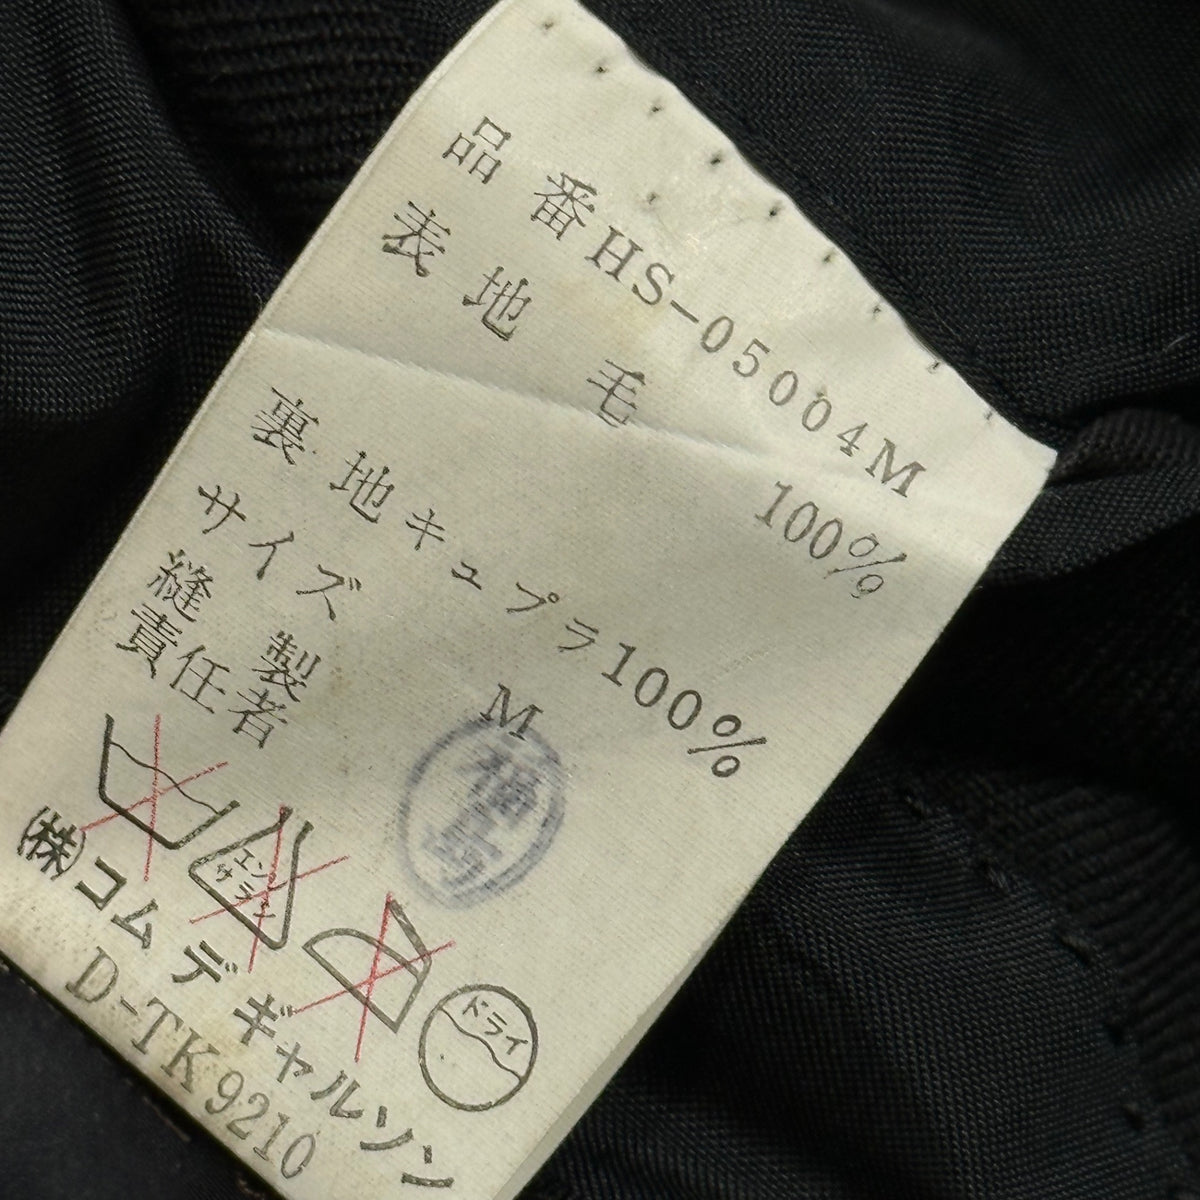 品番HS-05004M
表地 毛 100%
裏地キュプラ100%
サイズ M
縫製
責任者
エンソ
サラシ
ドライ
(株)コムデギャルソン
D-TK9210